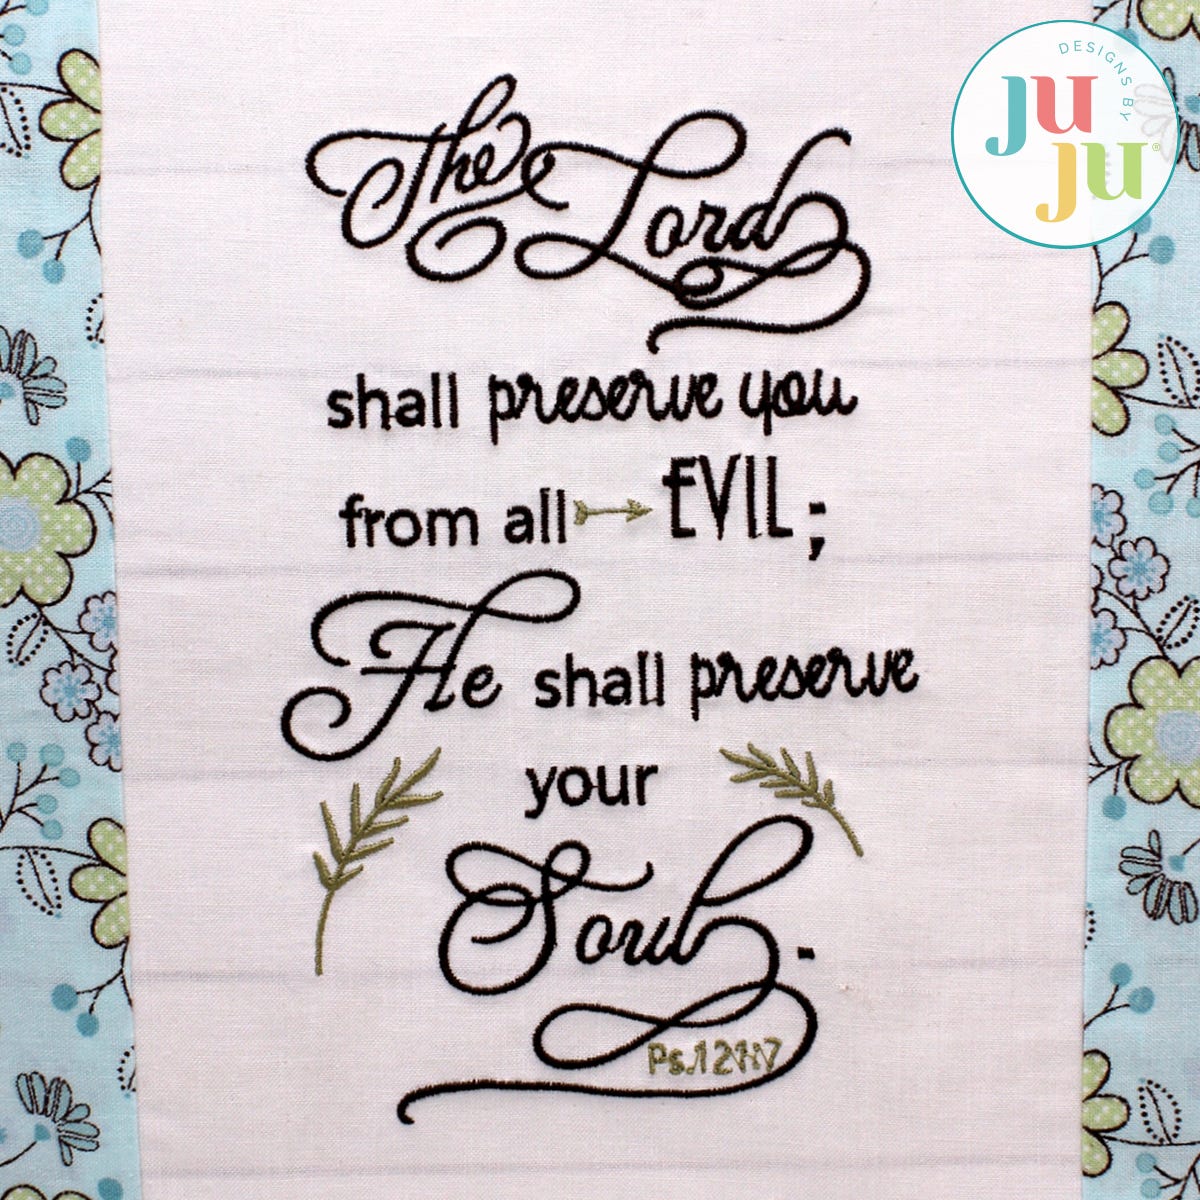 DESIGNS BY
JU
JU®
The Lord
shall preserve you
from all EVIL;
He shall preserve
your
Soul.
Ps.121:7